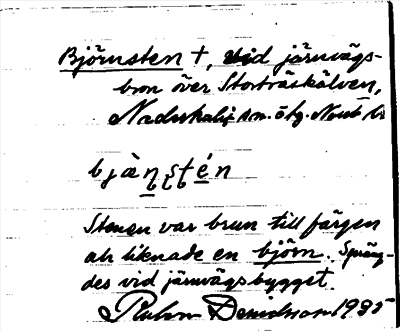 Björnsten +, vid järnvägs-
bron över Storträskälven,
Nederkalix sn. ö tg. Norrb l.
bjὰṇṣṭén
Stenen var brun till färgen
och liknade en björn. Spräng-
des vid järnvägsbygget.
Ruben Danielsson 1935